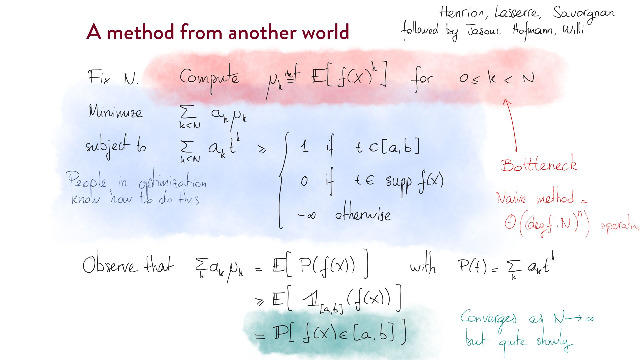 Henrion, Lasserre, Savorgnan
followed by Jasour, Hofmann, Willi
A method from another world
Fix N. Compute μₖ ≝ 𝔼[f(X)ᵏ] for 0 ≤ k < N
Minimize ∑_{k<N} aₖ μₖ
subject to ∑_{k<N} aₖ tᵏ ≥ { 1 if t ∈ [a,b]
0 if t ∈ supp f(X)
-∞ otherwise
People in optimization
know how to do this
Bottleneck
Naive method =
O((deg f · N)ⁿ) operations
Observe that ∑ₖ aₖ μₖ = 𝔼[P(f(X))] with P(t) = ∑ₖ aₖ tᵏ
≥ 𝔼[𝟙_{[a,b]}(f(X))]
= ℙ[f(X) ∈ [a,b]]
Converges as N → ∞
but quite slowly